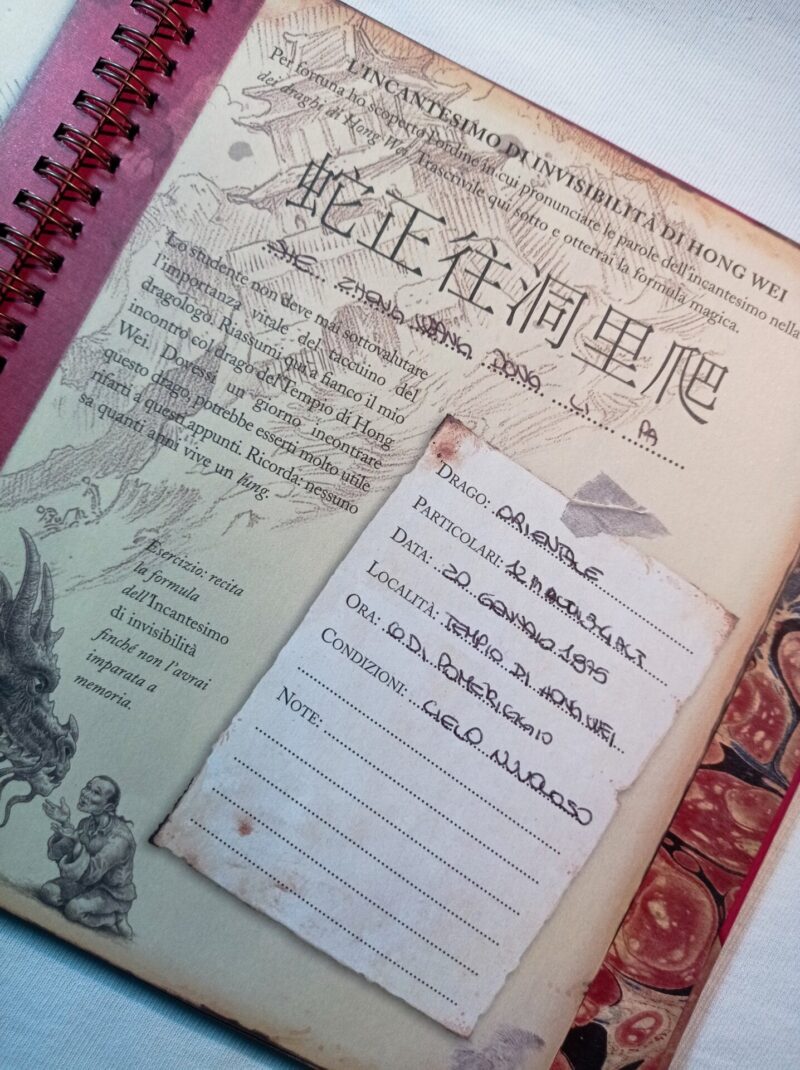 L'INCANTESIMO DI INVISIBILITÀ DI HONG WEI
Per fortuna ho scoperto l'ordine in cui pronunciare le parole dell'incantesimo nella
dei draghi di Hong Wei. Trascrivile qui sotto e otterrai la formula magica.
蛇正往洞里爬
SHE ZHENG WANG DONG LI PA
Lo studente non deve mai sottovalutare
l'importanza vitale del taccuino del
dragologo. Riassumi qui a fianco il mio
incontro col drago del Tempio di Hong
Wei. Dovessi un giorno incontrare
questo drago, potrebbe esserti molto utile
rifarti a questi appunti. Ricorda: nessuno
sa quanti anni vive un lung.
Esercizio: recita
la formula
dell'Incantesimo
di invisibilità
finché non l'avrai
imparata a
memoria.
DRAGO: ORIENTALE
PARTICOLARI: 12 M
DATA: 20 GENNAIO 1875
LOCALITÀ: TEMPIO DI HONG WEI
ORA: DI POMERIGGIO
CONDIZIONI: CIELO NUVOLOSO
NOTE: